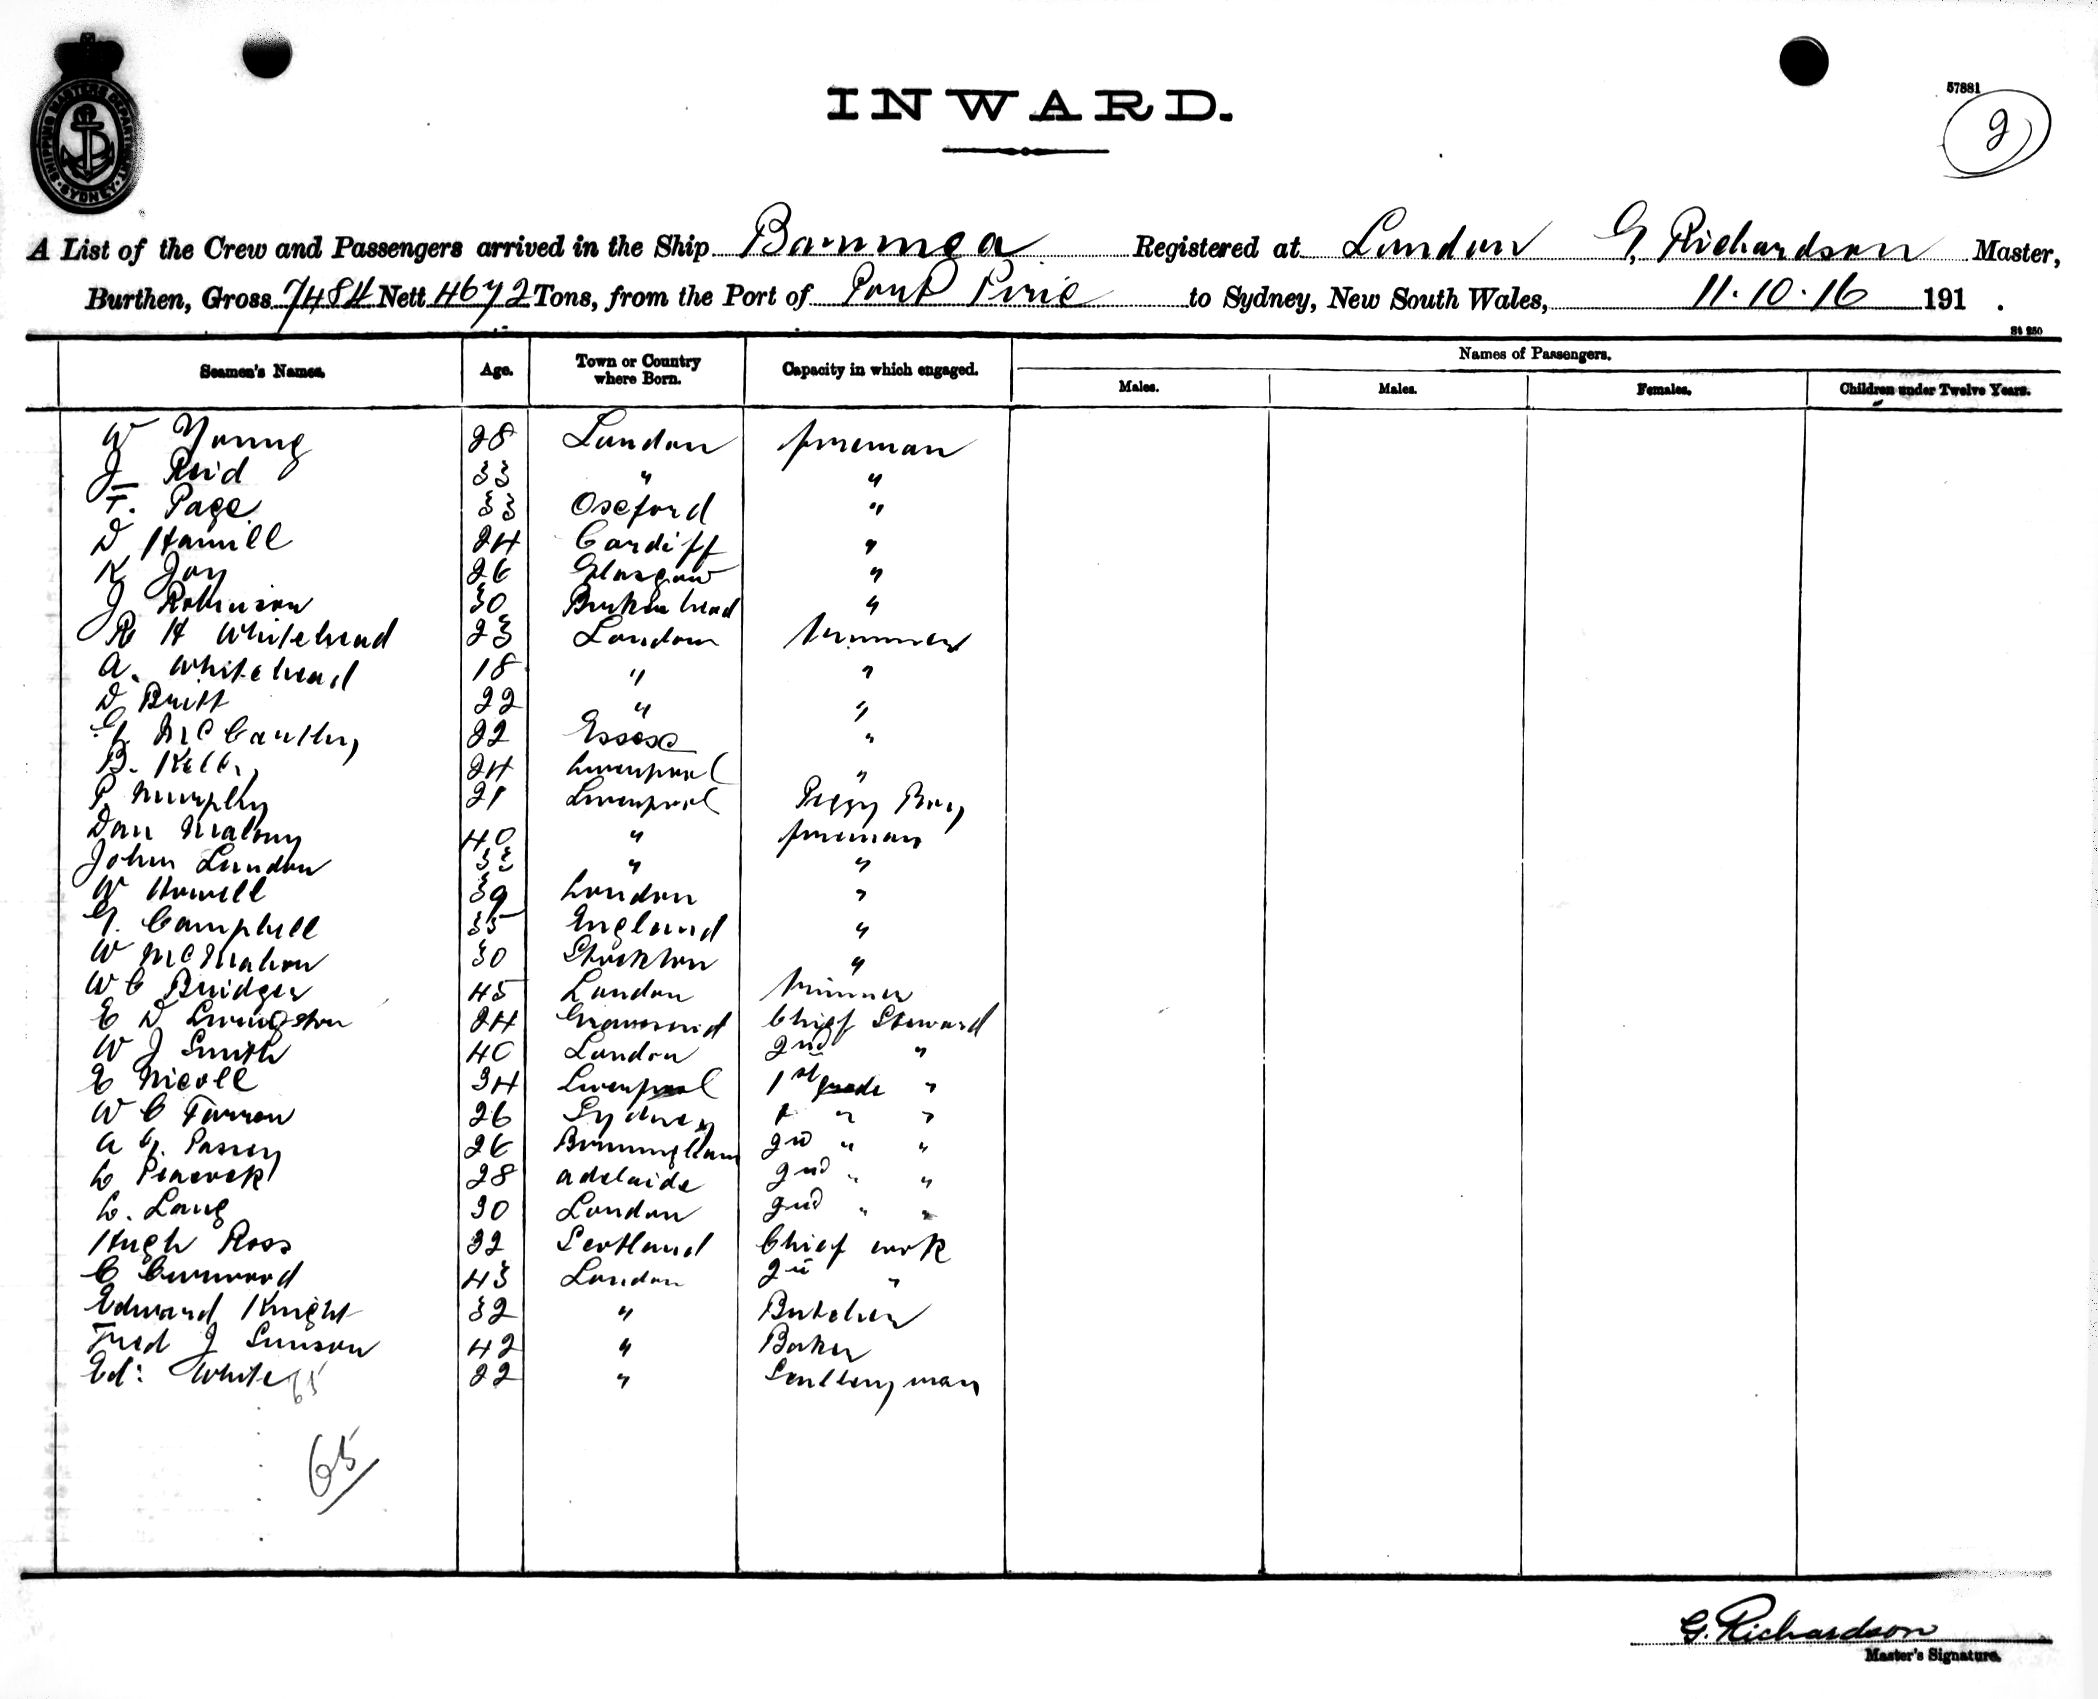 SHIPPING MASTERS DEPARTMENT
SYDNEY
INWARD.
57881
2
A List of the Crew and Passengers arrived in the Ship Barunga Registered at London G. Richardson Master,
Burthen, Gross 7484 Nett 4672 Tons, from the Port of Port Pirie to Sydney, New South Wales, 11.10.16 191 .
St 250
Names of Passengers.
Seamen's Names. Age. Town or Country where Born. Capacity in which engaged. Males. Males. Females. Children under Twelve Years.
W Young 28 London fireman
J Reid 33 " "
F. Page 33 Oxford "
D Hamill 24 Cardiff "
K Joy 26 Glasgow "
J Robinson 30 Birkenhead "
R H Whitehead 23 London trimmer
A. Whitehead 18 " "
D Britt 22 " "
G McCauthy 22 Essex "
B. Kelly 24 Liverpool "
P. Murphy 21 Liverpool Peggy Boy
Dan Malony 40 " fireman
John London 33 " "
W Howell 39 London "
G. Campbell 35 England "
W McMahon 30 Stockton "
W C Bridger 45 London trimmer
E D Livingston 24 Gravesend Chief Steward
W J Smith 40 London 2nd "
E Nicoll 34 Liverpool 1st grade "
W C Farron 26 Sydney 1 " "
A G. Passey 26 Birmingham 2nd " "
L Peacock 28 Adelaide 2nd " "
L. Lang 30 London 2nd " "
Hugh Ross 32 Scotland Chief cook
C Curwood 43 London 2nd "
Edward Knight 32 " Butcher
Fred J Simson 42 " Baker
Ed: White 65 22 " Scullery man
65
G. Richardson
Master's Signature.